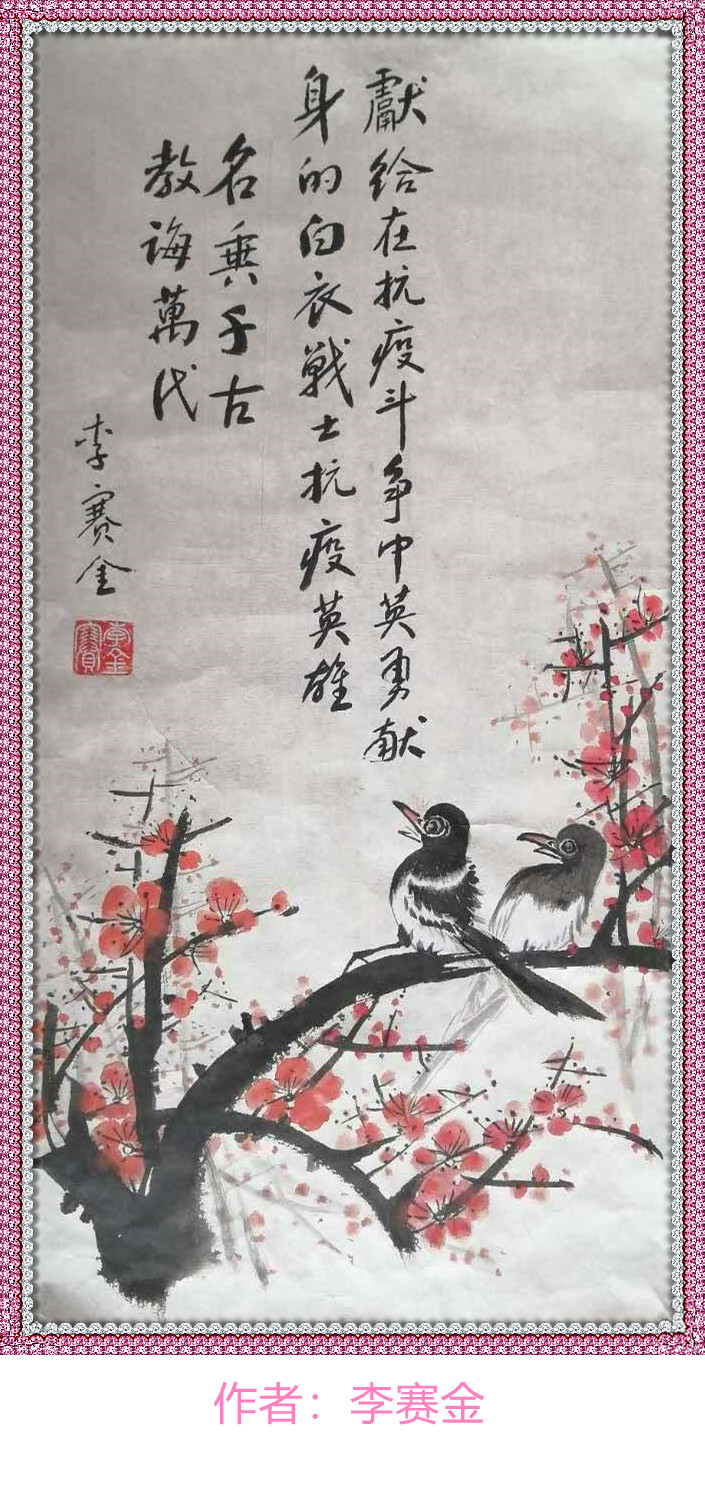 獻给在抗疫斗争中英勇献
身的白衣戰士抗疫英雄
名垂千古
教诲萬代
李赛金
作者：李赛金